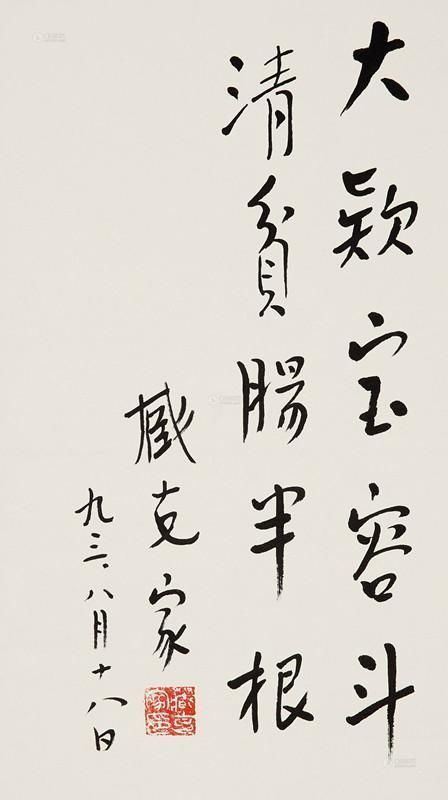 大款宝容斗
清貧腸半根
臧克家
九三、八月十八日